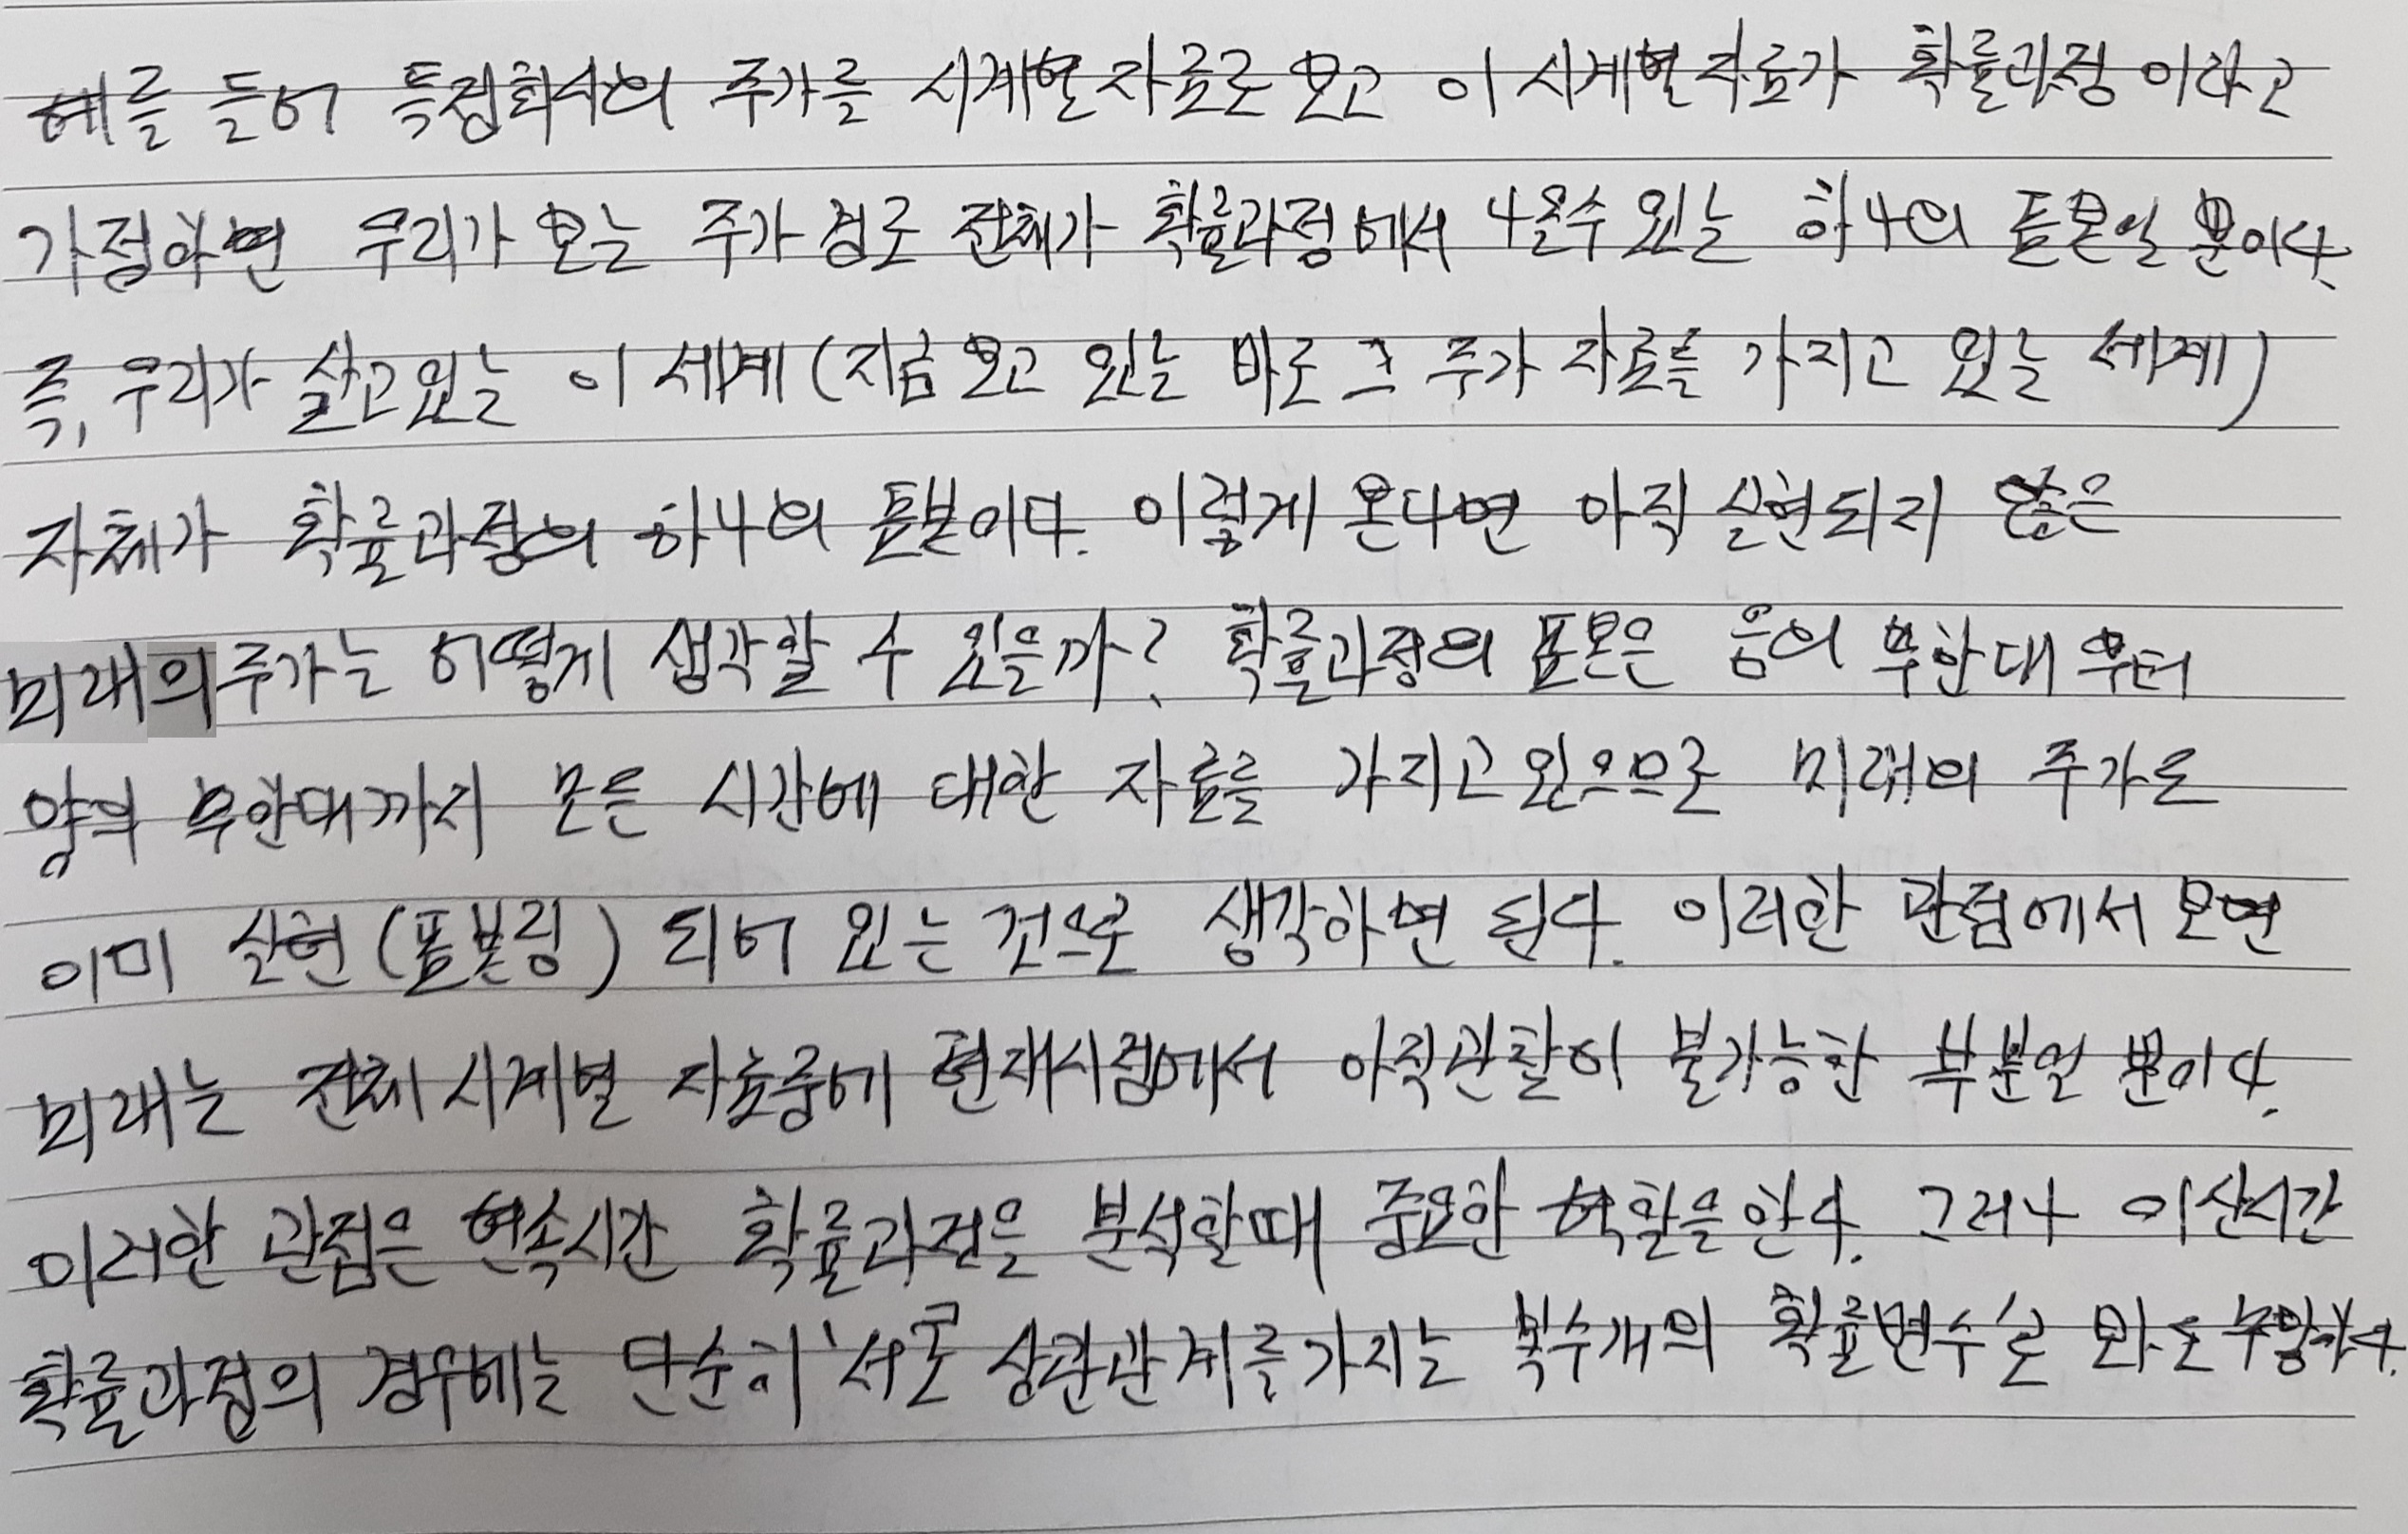 예를 들어 특정회사의 주가를 시계열자료로 보고 이 시계열자료가 확률과정 이라고
가정하면 우리가 보는 주가 경로 전체가 확률과정에서 나올수 있는 하나의 표본일 뿐이다.
즉, 우리가 살고있는 이 세계 (지금 보고 있는 바로 그 주가 자료를 가지고 있는 세계)
자체가 확률과정의 하나의 표본이다. 이렇게 본다면 아직 실현되지 않은
미래의 주가는 어떻게 생각할 수 있을까? 확률과정의 표본은 음의 무한대 부터
양의 무한대까지 모든 시간에 대한 자료를 가지고있으므로 미래의 주가도
이미 실현 (표본링) 되어 있는 것으로 생각하면 된다. 이러한 관점에서 보면
미래는 전체 시계열 자료중에 현재시점에서 아직관찰이 불가능한 부분일 뿐이다.
이러한 관점은 연속시간 확률과정을 분석할때 중요한 역할을한다. 그러나 이산시간
확률과정의 경우에는 단순히 '서로 상관관계를가지는 복수개의 확률변수'로 봐도 무방하다.